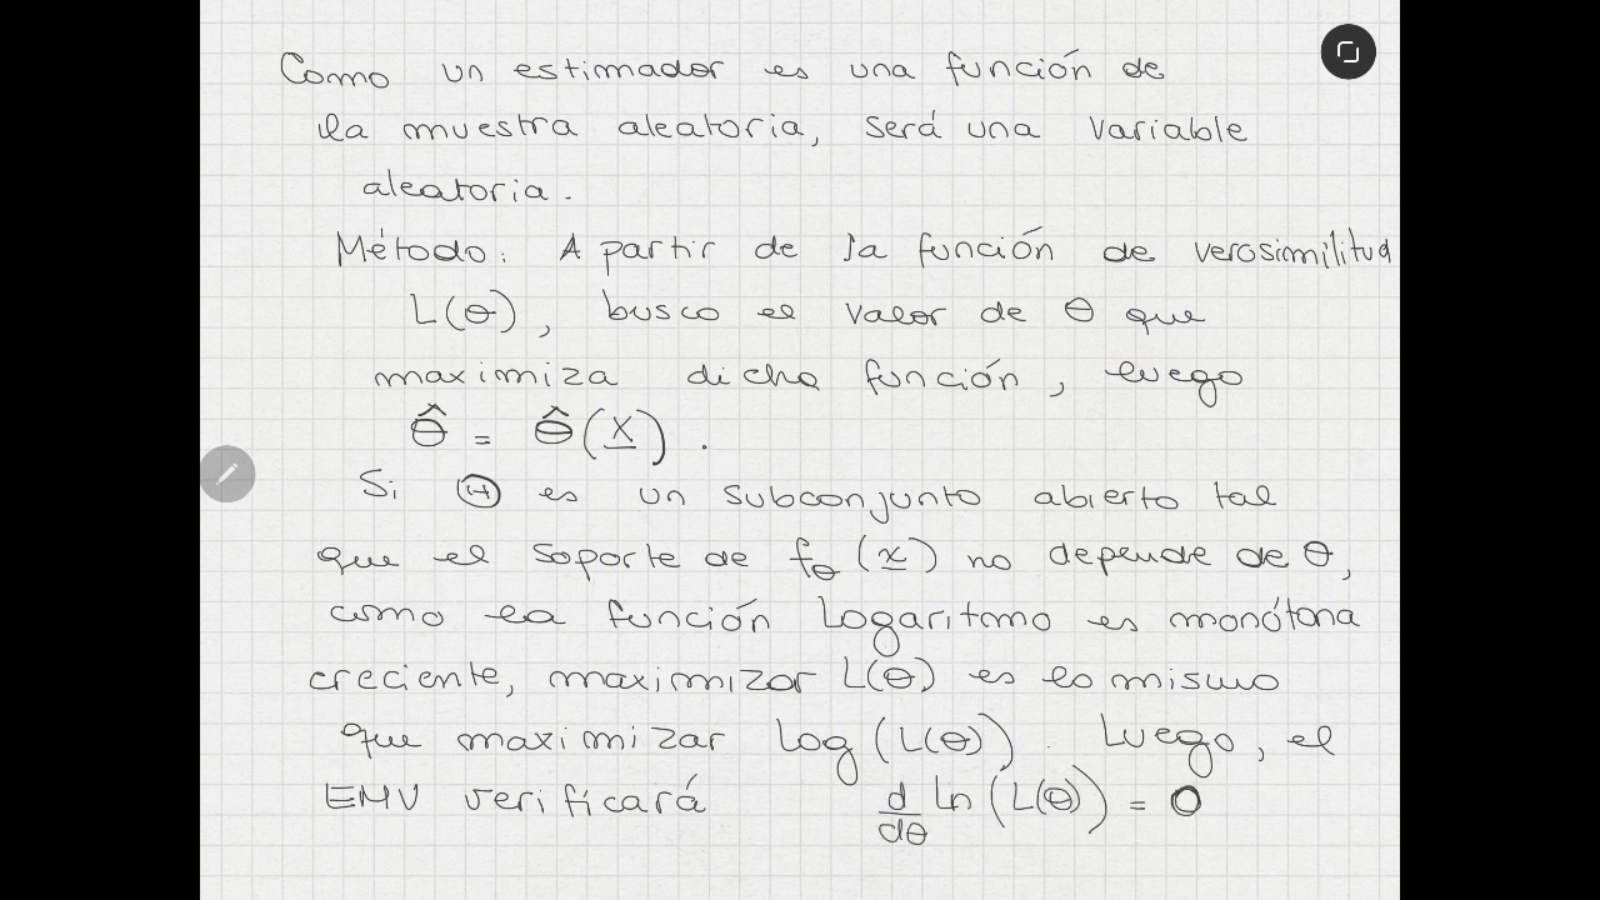 Como un estimador es una función de
la muestra aleatoria, será una variable
aleatoria.
Método: A partir de la función de verosimilitud
L(θ), busco el valor de θ que
maximiza dicha función, luego
θ̂ = θ̂(X̲).
Si Θ es un subconjunto abierto tal
que el soporte de f_θ(x̲) no depende de θ,
como la función logaritmo es monótona
creciente, maximizar L(θ) es lo mismo
que maximizar log(L(θ)). Luego, el
EMV verificará d/dθ ln(L(θ)) = 0